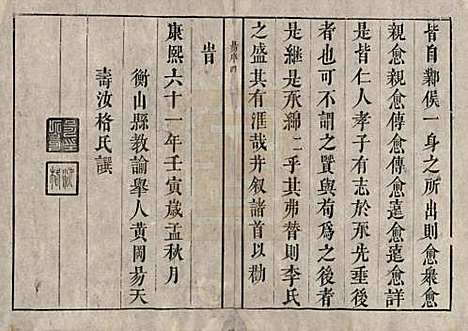 皆自鄴侯一身之所出則愈衆愈
親愈親愈傳愈傳愈遠愈遠愈詳
是皆仁人孝子有志於承先垂後
者也可不謂之賢與苟為之後者
是繼是承綿綿乎其弗替則李氏
之盛其有涯哉并叙諸首以勸
旹
康熙六十一年壬寅歲孟秋月
衡山縣教諭舉人黃岡易天
壽汝格氏譔